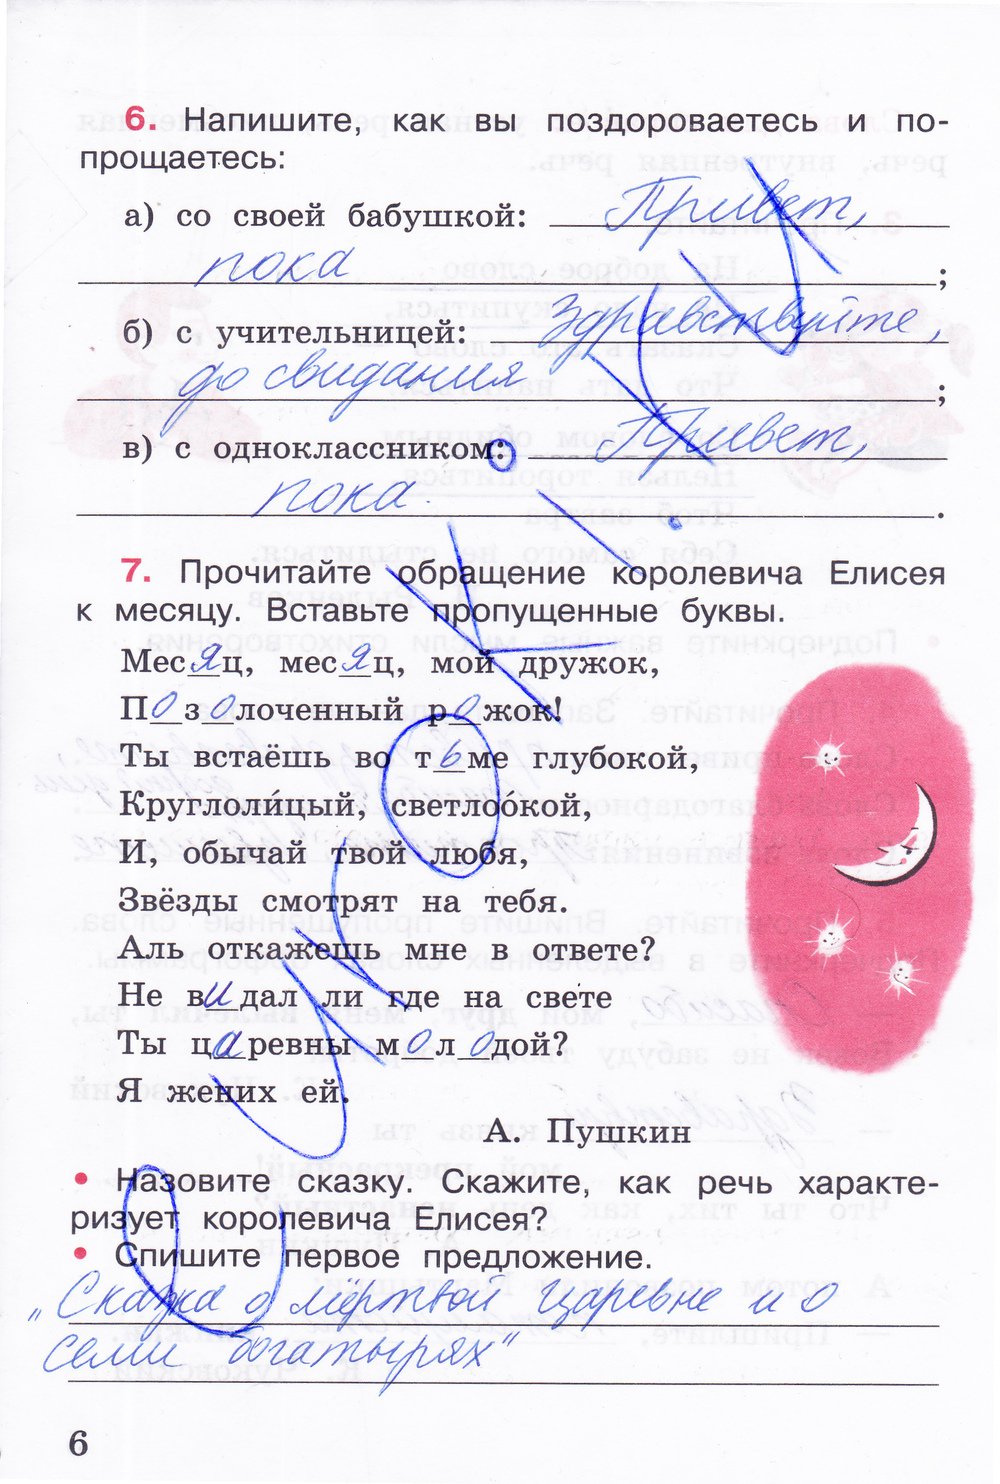 6. Напишите, как вы поздороваетесь и по-
прощаетесь:
а) со своей бабушкой: Привет,
пока ;
б) с учительницей: Здравствуйте,
до свидания ;
в) с одноклассником: Привет,
пока.
7. Прочитайте обращение королевича Елисея
к месяцу. Вставьте пропущенные буквы.
Месяц, месяц, мой дружок,
Позолоченный рожок!
Ты встаёшь во тьме глубокой,
Круглоли́цый, светлоо́кой,
И, обычай твой любя,
Звёзды смотрят на тебя.
Аль откажешь мне в ответе?
Не видал ли где на свете
Ты царевны молодой?
Я жених ей.
А. Пушкин
• Назовите сказку. Скажите, как речь характе-
ризует королевича Елисея?
• Спишите первое предложение.
„Сказка о мёртвой царевне и о
семи богатырях"
6